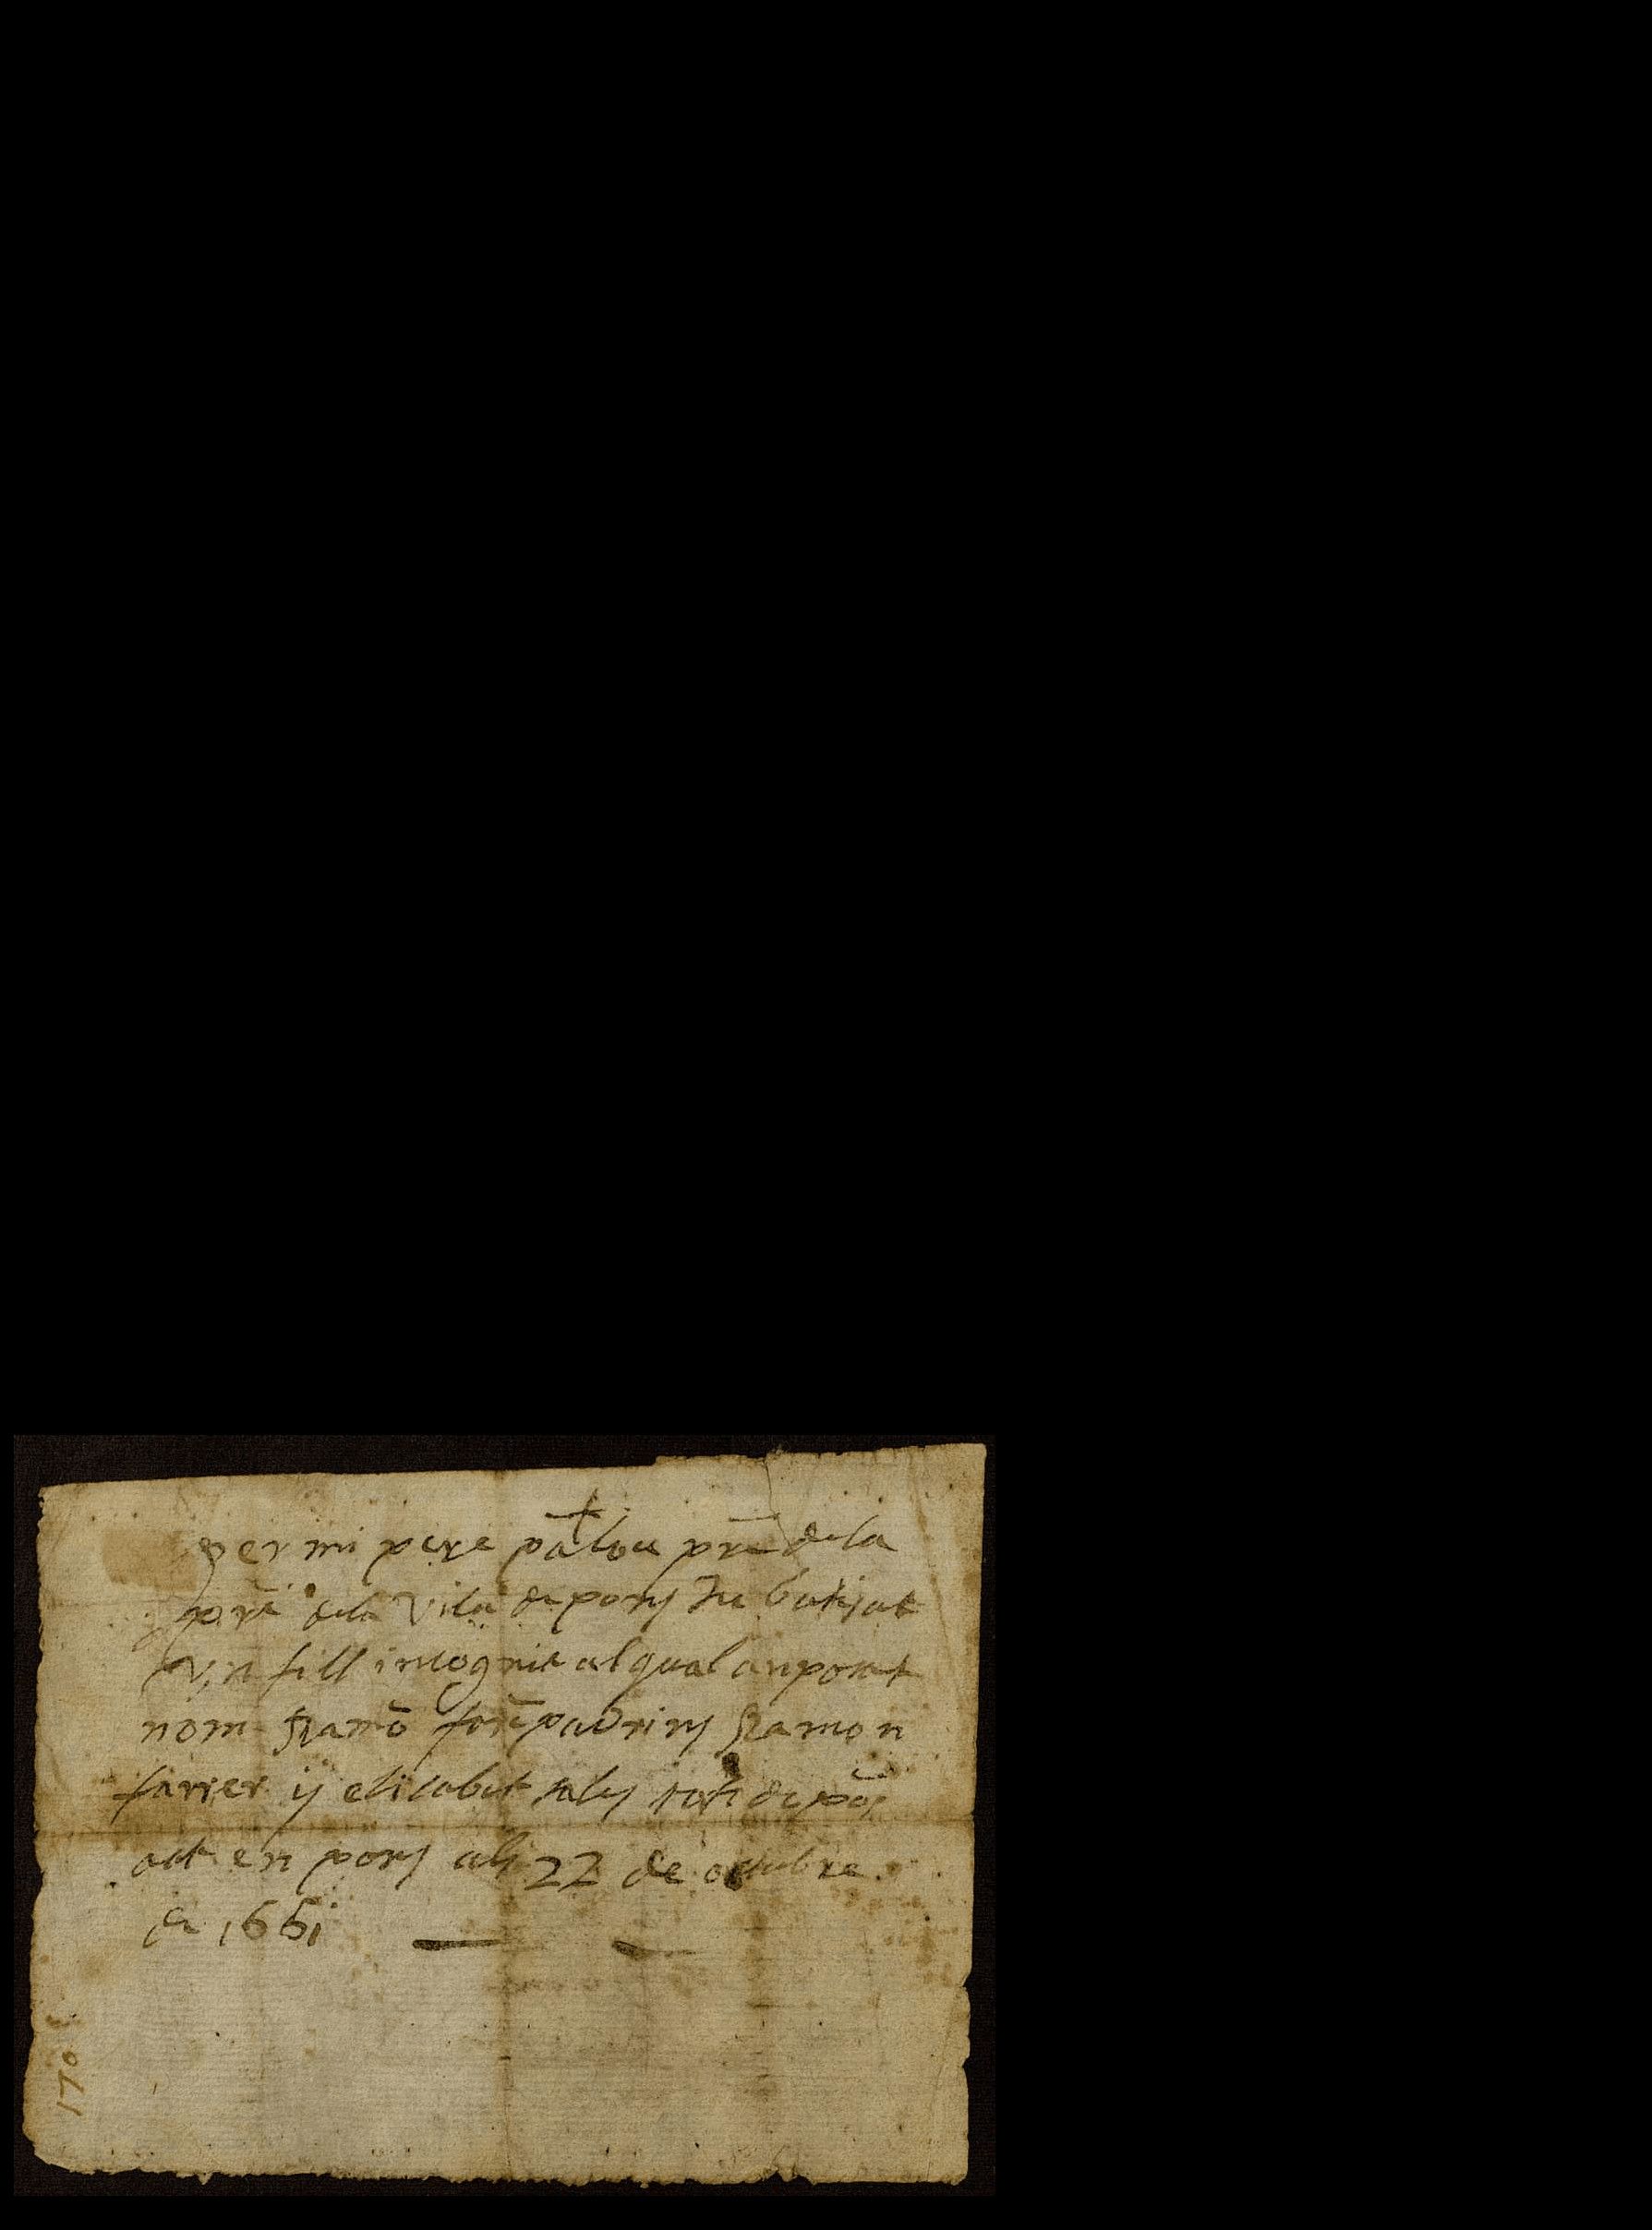 per mi pere palou prē dela
prā dela Vila de pons fu batiat
Un fill incognit al qual an posat
nom Ramō forē padrins Ramon
farrer y elisabet tots de pōs
act en pons als 22 de octubre
de 1661
170